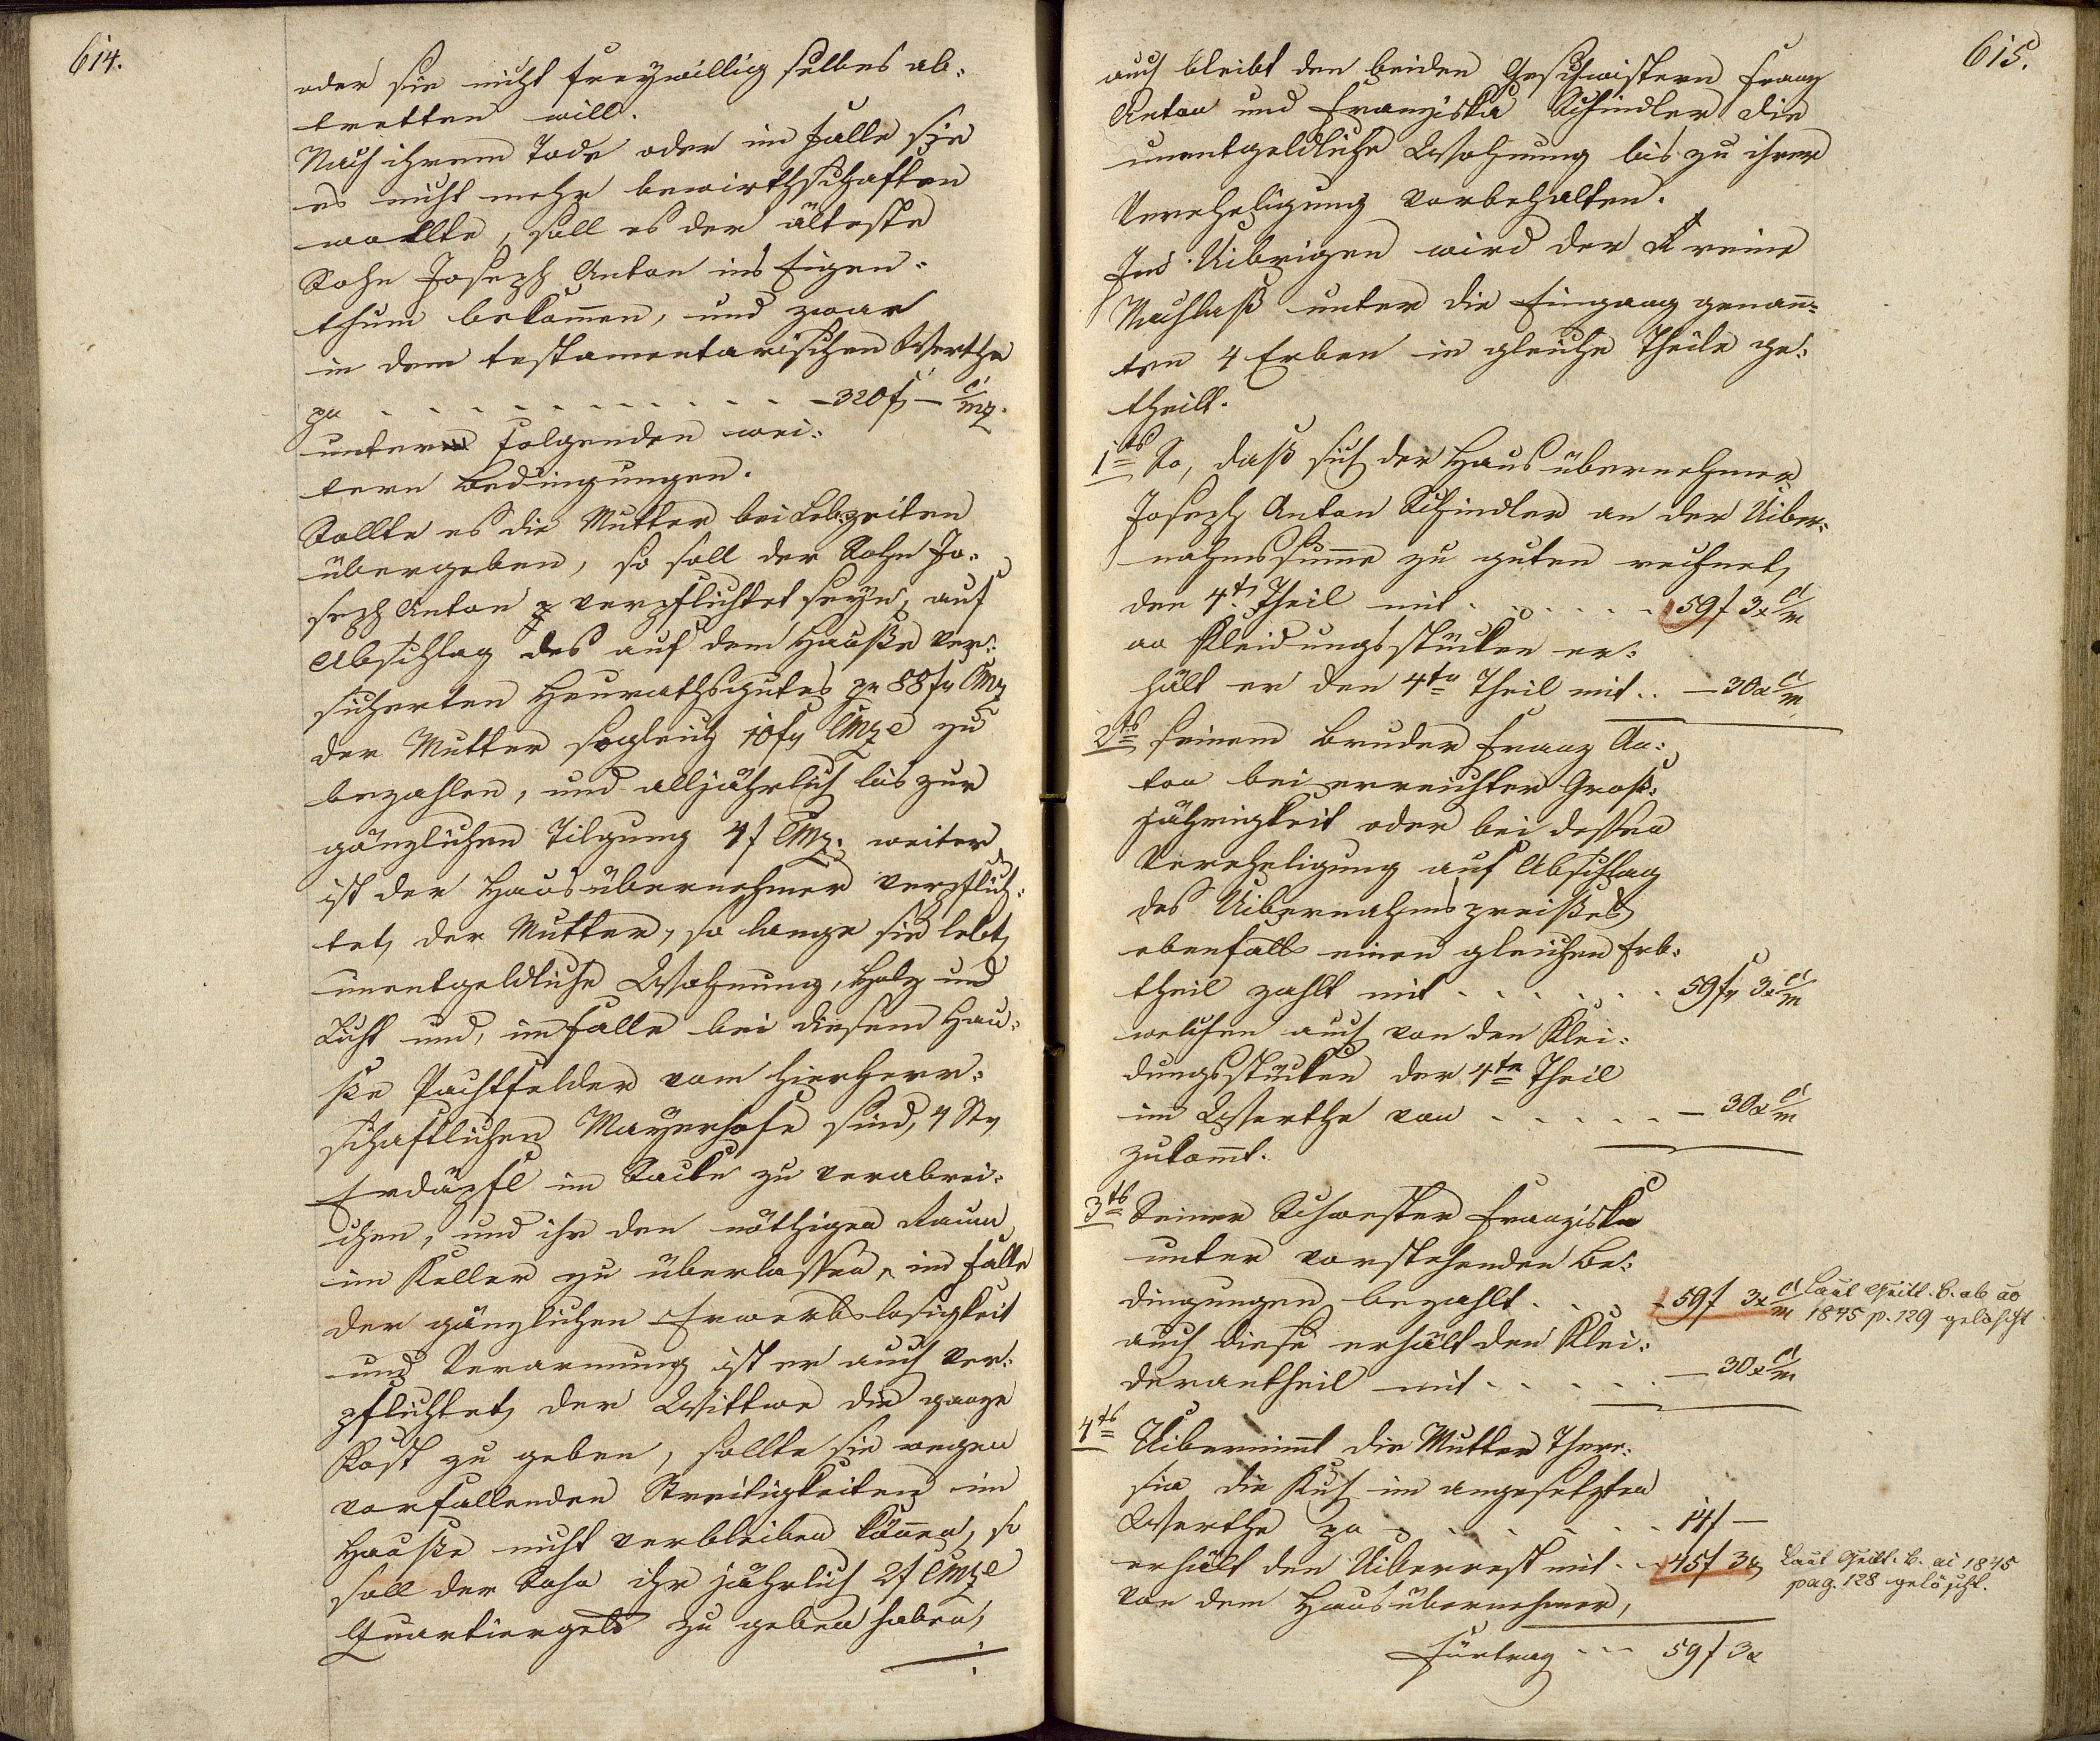 614.
oder sie nicht freywillig selbes ab-
tretten will.
Nach ihrem Tode oder im Falle sie
es nicht mehr bewirthschaften
wollte, soll es der älteste
Sohn Joseph Anton ins Eigen-
thum bekommen, und zwar
in dem testamentarischen Werthe
pr - - - - - - - - - - - - 320 f – C/mz.
unter folgenden wei-
tern Bedingungen.
Sollte es die Mutter bei Lebzeiten
übergeben, so soll der Sohn Jo-
seph Anton verpflichtet seyn, auf
Abschlag des auf dem Hauße ver-
sicherten Heurathsgutes pr 88 f CMz
der Mutter sogleich 10 f CMze zu
bezahlen, und alljährlich bis zur
gänzlichen Tilgung 4 f CMz. weiter
ist der Hausübernehmer verpflich-
tet, der Mutter, so lange sie lebt,
unentgeldliche Wohnung, Holz und
Licht und, im Falle bei diesem Hau-
ße Pachtfelder vom hierherr-
schaftlichen Mayerhofe sind, 4 Str
Erdäpfl im Sacke zu verabrei-
chen, und ihr den nöthigen Raum
im Keller zu überlassen, im Falle
der gänzlichen Erwerbslosigkeit
und Verarmung ist er auch ver-
pflichtet, der Wittwe die ganze
Kost zu geben, sollte sie wegen
vorfallenden Streitigkeiten im
Hauße nicht verbleiben können, so
soll der Sohn ihr jährlich 2 f CMze
Quartiergeld zu geben haben,
615.
auch bleibt den beiden Geschwistern Franz
Anton und Franziska Schindler die
unentgeldliche Wohnung bis zu ihrer
Vereheligung vorbehalten.
Ins Uibrigen wird der reine
Nachlaß unter die Eingang genann-
ten 4 Erben in gleiche Theile ge-
theilt.
1ts So, daß sich der Hausübernehmer
Joseph Anton Schindler an der Uiber-
nahmssumme zu guten rechnet,
den 4t Theil mit - - - - - 59 f 3 x C/m
an Kleidungsstücken er-
hält er den 4tn Theil mit .. – 30 x C/m
2ts seinem Bruder Franz An-
ton bei erreichter Groß-
jährigkeit oder bei dessen
Vereheligung auf Abschlag
des Uibernahmspreißes,
ebenfalls einen gleichen Erb-
theil zahlt mit - - - - - - 59 f 3 x C/m
welchen auch von den Klei-
dungsstücken der 4te Theil
im Werthe von - - - - - – 30 x C/m
zukommt.
3ts Seiner Schwester Franziska
unter vorstehenden Be-
dingungen bezahlt . . . . 59 f 3 x C/m
Laut Quitt. B. ab ao
1845 p. 129 gelöscht
auch diese erhält den Klei-
derantheil mit - - - - - – 30 x C/m
4ts Uibernimmt die Mutter There-
sia die Kuh im angesetzten
Werthe pr - - - - - - - 14 f –
erhält den Uiberrest mit - - 45 f 3 x
Laut Quitt. B. ai 1845
pag. 128 gelöscht.
von dem Hausübernehmer,
Fürtrag - - - 59 f 3 x